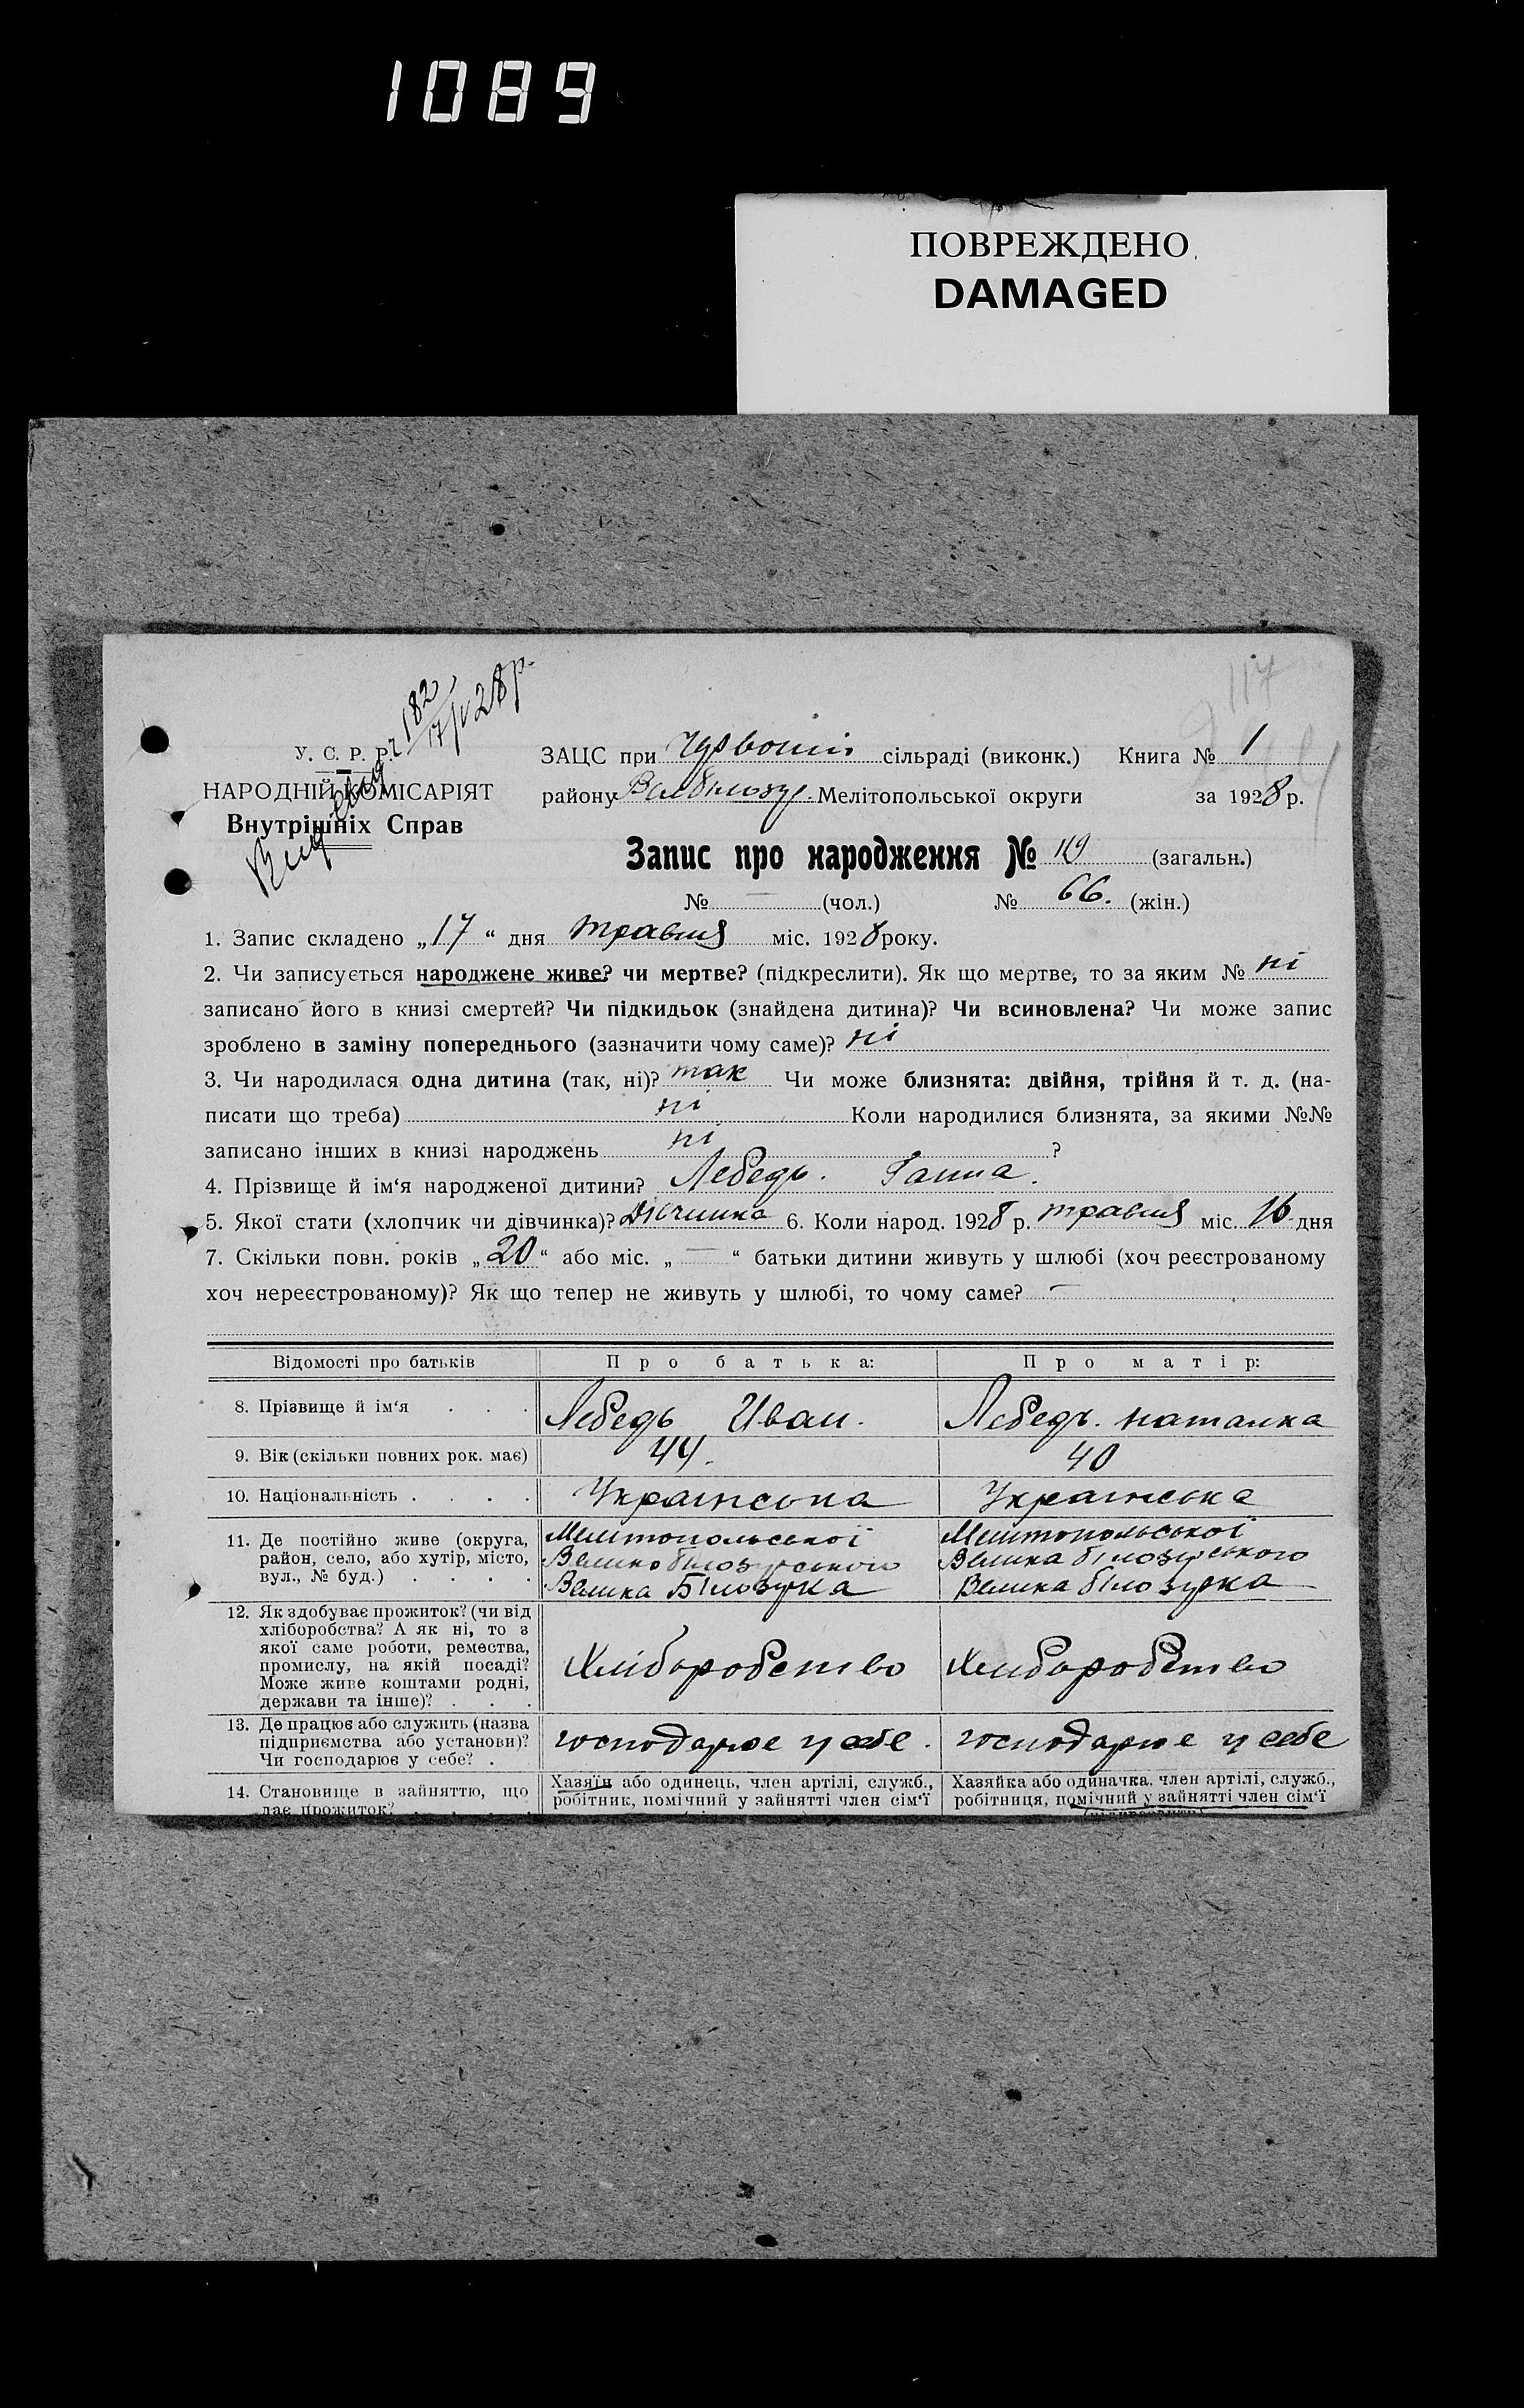 1089
ПОВРЕЖДЕНО
DAMAGED
117
182
17/V 28 р.
У. С. Р. Р.
НАРОДНІЙ КОМІСАРІЯТ
Внутрішніх Справ
ЗАЦС при Червоній сільраді (виконк.) Книга № 1
району Вел Білозер. Мелітопольської округи за 1928 р.
Запис про народження № 119 (загальн.)
№ — (чол.) № 66. (жін.)
1. Запис складено „17“ дня травня міс. 1928 року.
2. Чи записується народжене живе? чи мертве? (підкреслити). Як що мертве, то за яким № ні
записано його в книзі смертей? Чи підкидьок (знайдена дитина)? Чи всиновлена? Чи може запис
зроблено в заміну попереднього (зазначити чому саме)? ні
3. Чи народилася одна дитина (так, ні)? так Чи може близнята: двійня, трійня й т. д. (на-
писати що треба) ні Коли народилися близнята, за якими №№
записано інших в книзі народжень ні ?
4. Прізвище й ім‘я народженої дитини? Лебедь. Ганна.
5. Якої стати (хлопчик чи дівчинка)? Дівчинка 6. Коли народ. 1928 р. травня міс. 16 дня
7. Скільки повн. років „20“ або міс. „—“ батьки дитини живуть у шлюбі (хоч реєстрованому
хоч нереєстрованому)? Як що тепер не живуть у шлюбі, то чому саме? —
Відомості про батьків Про батька: Про матір:
8. Прізвище й ім‘я . . . Лебедь Иван. Лебедь. Наталка
9. Вік (скільки повних рок. має) 44. 40
10. Національність . . . . Українська Українська
11. Де постійно живе (округа, Мелітопольської Мелітопольської
район, село, або хутір, місто, Великобілозурського Велика білозурського
вул., № буд.) . . . . Велика Білозурка Велика білозурка
12. Як здобуває прожиток? (чи від
хліборобства? А як ні, то з
якої саме роботи, ремества,
промислу, на якій посаді? Хліборобство Хліборобство
Може живе коштами родні,
держави та інше)? . . .
13. Де працює або служить (назва
підприємства або установи)? господарює у себе. господарює у себе
Чи господарює у себе? .
14. Становище в зайняттю, що Хазяїн або одинець, член артілі, служб., Хазяйка або одиначка, член артілі, служб.,
дає прожиток? робітник, помічний у зайнятті член сім‘ї робітниця, помічний у зайнятті член сім‘ї